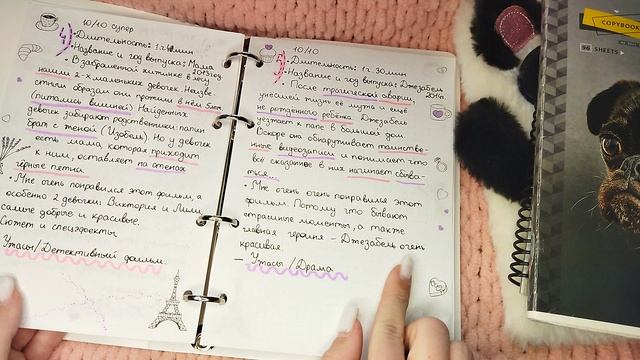 10/10 супер
3)
• Длительность: 1ч 41мин
• Название и год выпуска: Мама 2013год.
• В заброшенной хижинке в лесу
нашли 2-х маленьких девочек. Неизве-
стным образом они прожили в нём 5лет
(питались вишней) Найденных
девочек забирают родственники: папин
брат с женой (Изабель). Но у девочек
есть мама, которая приходит
к ним, оставляет на стенах
чёрные пятна.
• Мне очень понравился этот фильм, а
особенно 2 девочки: Виктория и Лили,
самые добрые и красивые.
Сюжет и спецэффекты
Ужасы/Детективный фильм.
10/10
• Длительность: 1ч. 30мин
• Название и год выпуска: Джезабель 2014г.
• После трагической аварии,
унёсшей жизнь её мужа и ещё
не рожденного ребёнка, Джезабель
уезжает к папе в большой дом
Вскоре она обнаруживает таинстве-
нные видеозаписи и понимает что
всё сказанное в них начинает сбыва-
ться...
• Мне очень очень понравился этот
фильм. Потому что бывают
страшные моменты, а также
главная героиня - Джезабель очень
красивая.
— Ужасы /Драма
COPYBOOK
96 SHEETS